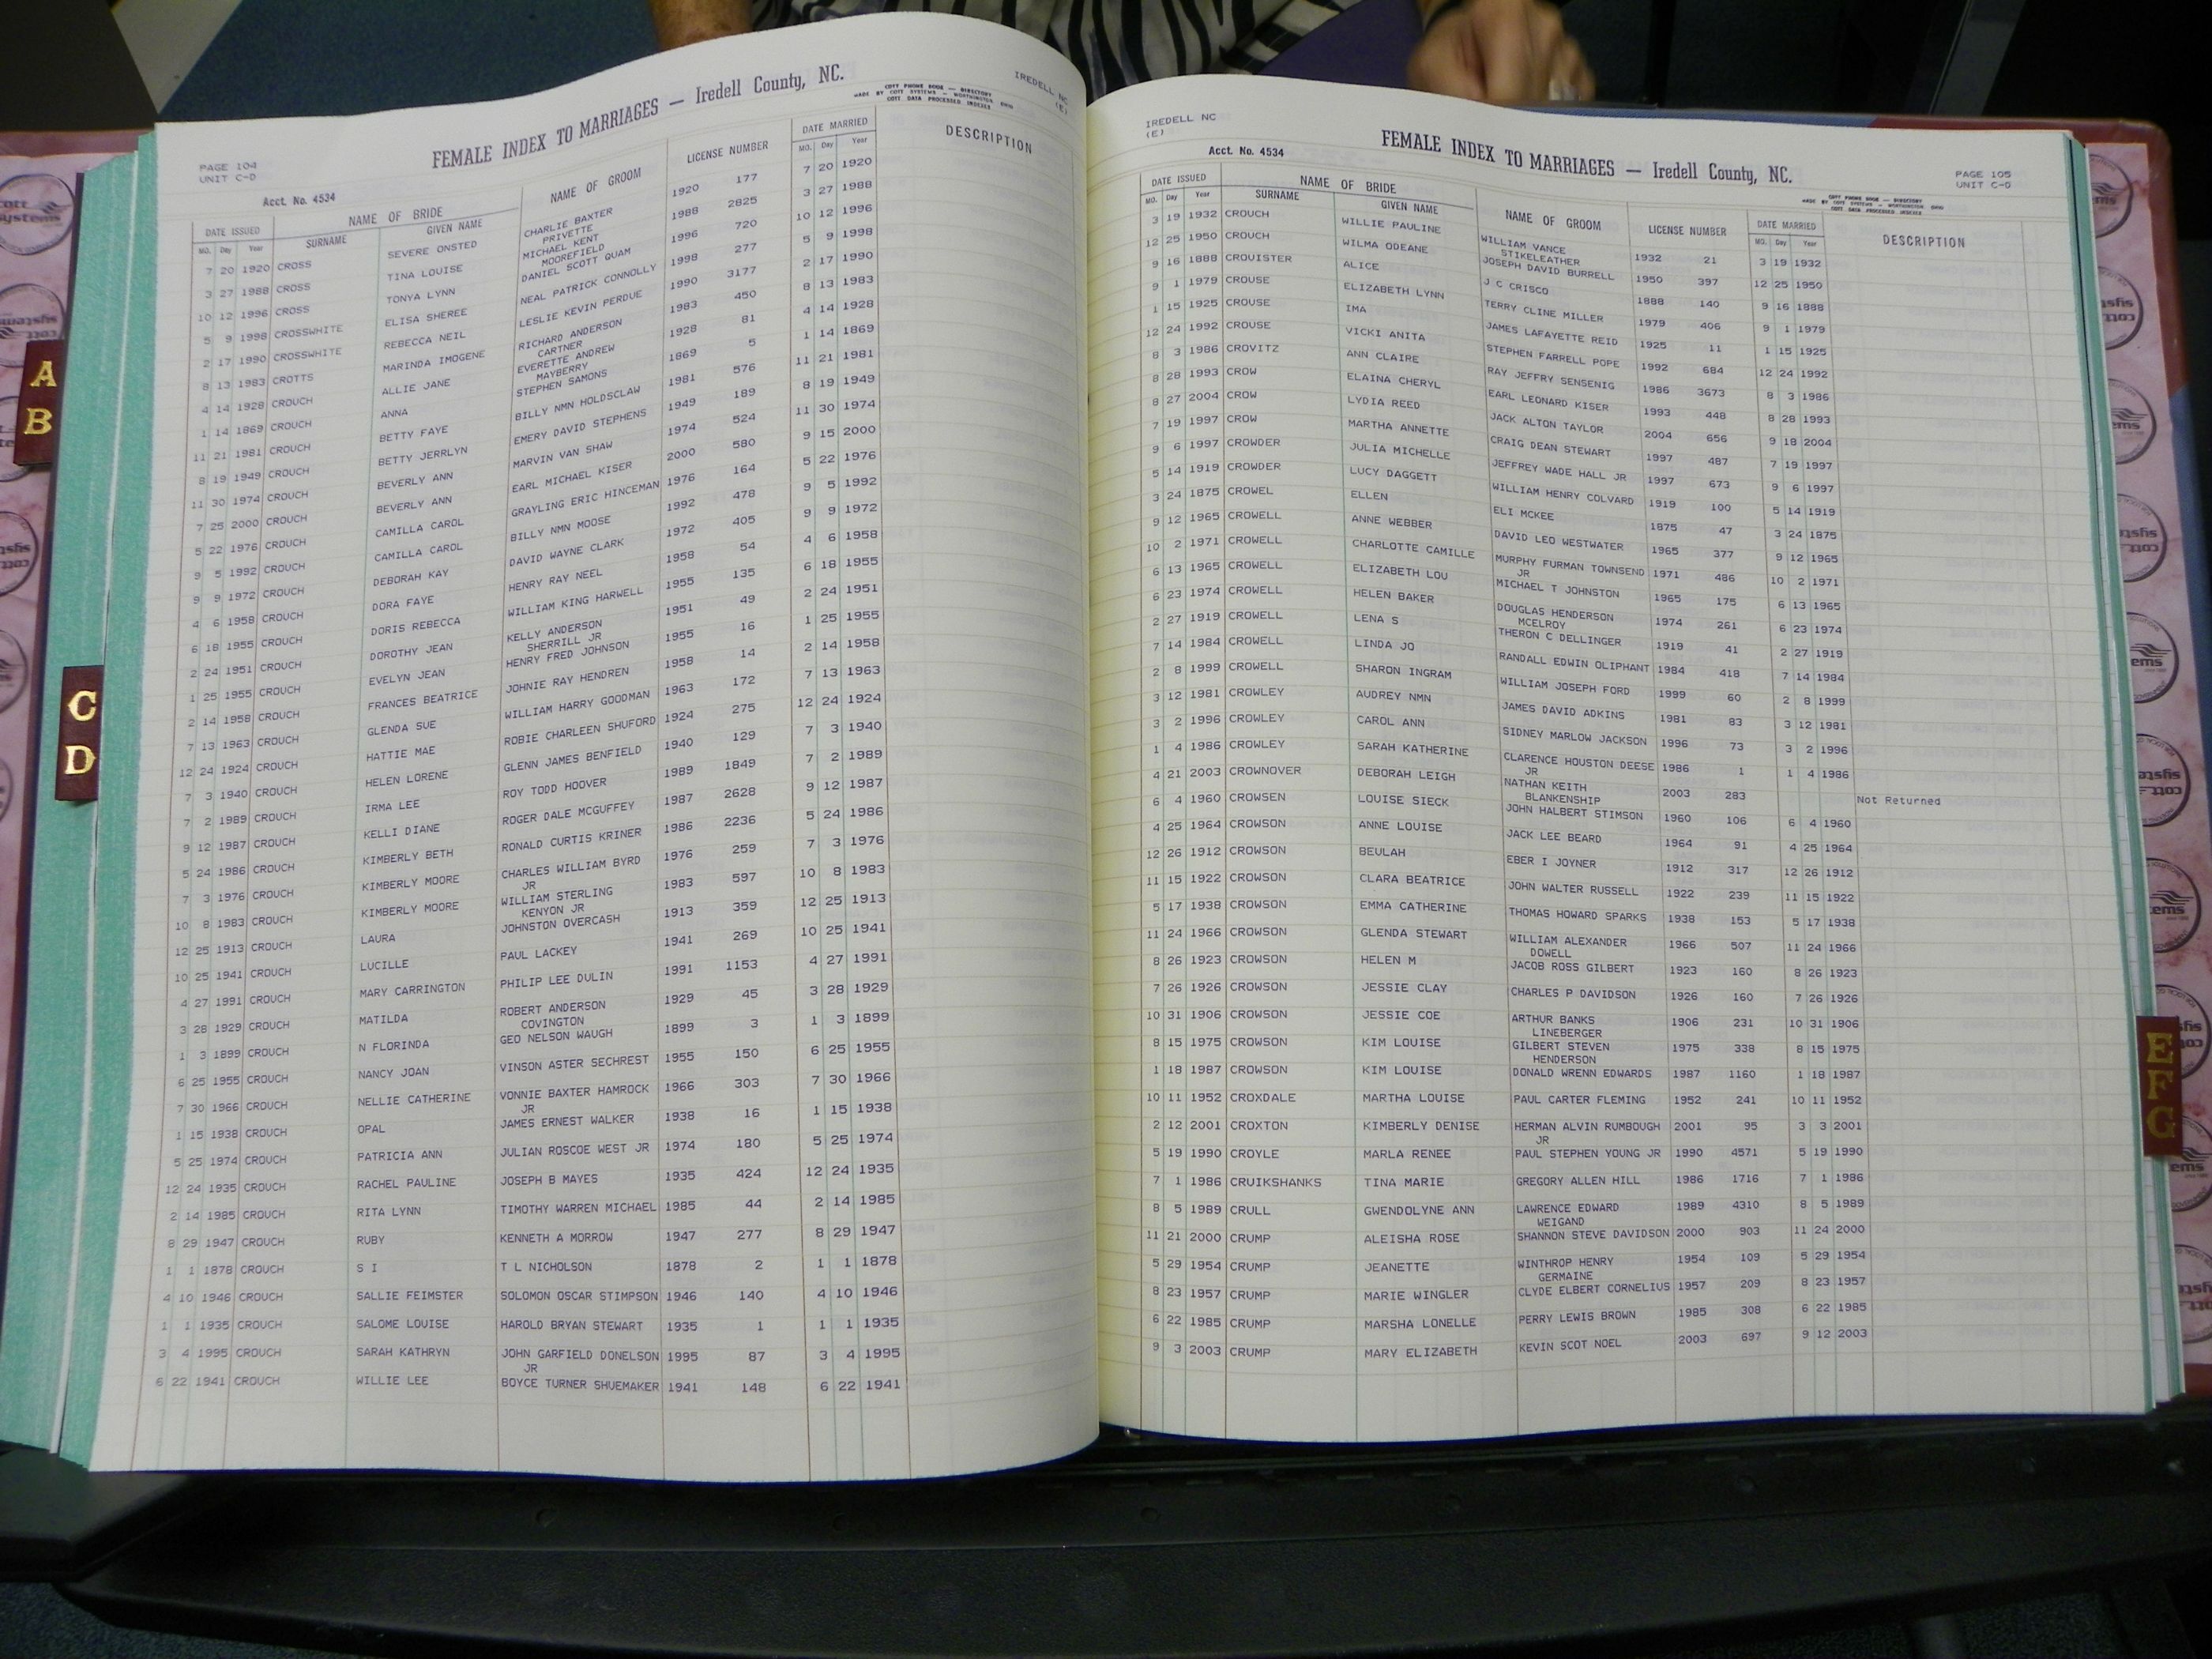 IREDELL NC
(E)
PAGE 104
UNIT C-D
FEMALE INDEX TO MARRIAGES — Iredell County, NC.
COTT PHONE BOOK — DIRECTORY
MADE BY COTT SYSTEMS — WORTHINGTON OHIO
COTT DATA PROCESSED INDEXES
Acct. No. 4534
DATE ISSUED NAME OF BRIDE NAME OF GROOM LICENSE NUMBER DATE MARRIED DESCRIPTION
MO. Day Year SURNAME GIVEN NAME MO. Day Year
7 20 1920 CROSS SEVERE ONSTED CHARLIE BAXTER 1920 177 7 20 1920
PRIVETTE
3 27 1988 CROSS TINA LOUISE MICHAEL KENT 1988 2825 3 27 1988
MOOREFIELD
10 12 1996 CROSS TONYA LYNN DANIEL SCOTT QUAM 1996 720 10 12 1996
5 9 1998 CROSSWHITE ELISA SHEREE NEAL PATRICK CONNOLLY 1998 277 5 9 1998
2 17 1990 CROSSWHITE REBECCA NEIL LESLIE KEVIN PERDUE 1990 3177 2 17 1990
8 13 1983 CROTTS MARINDA IMOGENE RICHARD ANDERSON 1983 450 8 13 1983
CARTNER
4 14 1928 CROUCH ALLIE JANE EVERETTE ANDREW 1928 81 4 14 1928
MAYBERRY
1 14 1869 CROUCH ANNA STEPHEN SAMONS 1869 5 1 14 1869
11 21 1981 CROUCH BETTY FAYE BILLY NMN HOLDSCLAW 1981 576 11 21 1981
8 19 1949 CROUCH BETTY JERRLYN EMERY DAVID STEPHENS 1949 189 8 19 1949
11 30 1974 CROUCH BEVERLY ANN MARVIN VAN SHAW 1974 524 11 30 1974
7 25 2000 CROUCH BEVERLY ANN EARL MICHAEL KISER 2000 580 9 15 2000
5 22 1976 CROUCH CAMILLA CAROL GRAYLING ERIC HINCEMAN 1976 164 5 22 1976
9 5 1992 CROUCH CAMILLA CAROL BILLY NMN MOOSE 1992 478 9 5 1992
9 9 1972 CROUCH DEBORAH KAY DAVID WAYNE CLARK 1972 405 9 9 1972
4 6 1958 CROUCH DORA FAYE HENRY RAY NEEL 1958 54 4 6 1958
6 18 1955 CROUCH DORIS REBECCA WILLIAM KING HARWELL 1955 135 6 18 1955
2 24 1951 CROUCH DOROTHY JEAN KELLY ANDERSON 1951 49 2 24 1951
SHERRILL JR
1 25 1955 CROUCH EVELYN JEAN HENRY FRED JOHNSON 1955 16 1 25 1955
2 14 1958 CROUCH FRANCES BEATRICE JOHNIE RAY HENDREN 1958 14 2 14 1958
7 13 1963 CROUCH GLENDA SUE WILLIAM HARRY GOODMAN 1963 172 7 13 1963
12 24 1924 CROUCH HATTIE MAE ROBIE CHARLEEN SHUFORD 1924 275 12 24 1924
7 3 1940 CROUCH HELEN LORENE GLENN JAMES BENFIELD 1940 129 7 3 1940
7 2 1989 CROUCH IRMA LEE ROY TODD HOOVER 1989 1849 7 2 1989
9 12 1987 CROUCH KELLI DIANE ROGER DALE MCGUFFEY 1987 2628 9 12 1987
5 24 1986 CROUCH KIMBERLY BETH RONALD CURTIS KRINER 1986 2236 5 24 1986
7 3 1976 CROUCH KIMBERLY MOORE CHARLES WILLIAM BYRD 1976 259 7 3 1976
JR
10 8 1983 CROUCH KIMBERLY MOORE WILLIAM STERLING 1983 597 10 8 1983
KENYON JR
12 25 1913 CROUCH LAURA JOHNSTON OVERCASH 1913 359 12 25 1913
10 25 1941 CROUCH LUCILLE PAUL LACKEY 1941 269 10 25 1941
4 27 1991 CROUCH MARY CARRINGTON PHILIP LEE DULIN 1991 1153 4 27 1991
3 28 1929 CROUCH MATILDA ROBERT ANDERSON 1929 45 3 28 1929
COVINGTON
1 3 1899 CROUCH N FLORINDA GEO NELSON WAUGH 1899 3 1 3 1899
6 25 1955 CROUCH NANCY JOAN VINSON ASTER SECHREST 1955 150 6 25 1955
7 30 1966 CROUCH NELLIE CATHERINE VONNIE BAXTER HAMROCK 1966 303 7 30 1966
JR
1 15 1938 CROUCH OPAL JAMES ERNEST WALKER 1938 16 1 15 1938
5 25 1974 CROUCH PATRICIA ANN JULIAN ROSCOE WEST JR 1974 180 5 25 1974
12 24 1935 CROUCH RACHEL PAULINE JOSEPH B MAYES 1935 424 12 24 1935
2 14 1985 CROUCH RITA LYNN TIMOTHY WARREN MICHAEL 1985 44 2 14 1985
8 29 1947 CROUCH RUBY KENNETH A MORROW 1947 277 8 29 1947
1 1 1878 CROUCH S I T L NICHOLSON 1878 2 1 1 1878
4 10 1946 CROUCH SALLIE FEIMSTER SOLOMON OSCAR STIMPSON 1946 140 4 10 1946
1 1 1935 CROUCH SALOME LOUISE HAROLD BRYAN STEWART 1935 1 1 1 1935
3 4 1995 CROUCH SARAH KATHRYN JOHN GARFIELD DONELSON 1995 87 3 4 1995
JR
6 22 1941 CROUCH WILLIE LEE BOYCE TURNER SHUEMAKER 1941 148 6 22 1941
A
B
C
D
IREDELL NC
(E)
PAGE 105
UNIT C-D
FEMALE INDEX TO MARRIAGES — Iredell County, NC.
COTT PHONE BOOK — DIRECTORY
MADE BY COTT SYSTEMS — WORTHINGTON OHIO
COTT DATA PROCESSED INDEXES
Acct. No. 4534
DATE ISSUED NAME OF BRIDE NAME OF GROOM LICENSE NUMBER DATE MARRIED DESCRIPTION
MO. Day Year SURNAME GIVEN NAME MO. Day Year
3 19 1932 CROUCH WILLIE PAULINE WILLIAM VANCE 1932 21 3 19 1932
STIKELEATHER
12 25 1950 CROUCH WILMA ODEANE JOSEPH DAVID BURRELL 1950 397 12 25 1950
9 16 1888 CROUISTER ALICE J C CRISCO 1888 140 9 16 1888
9 1 1979 CROUSE ELIZABETH LYNN TERRY CLINE MILLER 1979 406 9 1 1979
1 15 1925 CROUSE IMA JAMES LAFAYETTE REID 1925 11 1 15 1925
12 24 1992 CROUSE VICKI ANITA STEPHEN FARRELL POPE 1992 684 12 24 1992
8 3 1986 CROVITZ ANN CLAIRE RAY JEFFRY SENSENIG 1986 3673 8 3 1986
8 28 1993 CROW ELAINA CHERYL EARL LEONARD KISER 1993 448 8 28 1993
8 27 2004 CROW LYDIA REED JACK ALTON TAYLOR 2004 656 9 18 2004
7 19 1997 CROW MARTHA ANNETTE CRAIG DEAN STEWART 1997 487 7 19 1997
9 6 1997 CROWDER JULIA MICHELLE JEFFREY WADE HALL JR 1997 673 9 6 1997
5 14 1919 CROWDER LUCY DAGGETT WILLIAM HENRY COLVARD 1919 100 5 14 1919
3 24 1875 CROWEL ELLEN ELI MCKEE 1875 47 3 24 1875
9 12 1965 CROWELL ANNE WEBBER DAVID LEO WESTWATER 1965 377 9 12 1965
10 2 1971 CROWELL CHARLOTTE CAMILLE MURPHY FURMAN TOWNSEND 1971 486 10 2 1971
JR
6 13 1965 CROWELL ELIZABETH LOU MICHAEL T JOHNSTON 1965 175 6 13 1965
6 23 1974 CROWELL HELEN BAKER DOUGLAS HENDERSON 1974 261 6 23 1974
MCELROY
2 27 1919 CROWELL LENA S THERON C DELLINGER 1919 41 2 27 1919
7 14 1984 CROWELL LINDA JO RANDALL EDWIN OLIPHANT 1984 418 7 14 1984
2 8 1999 CROWELL SHARON INGRAM WILLIAM JOSEPH FORD 1999 60 2 8 1999
3 12 1981 CROWLEY AUDREY NMN JAMES DAVID ADKINS 1981 83 3 12 1981
3 2 1996 CROWLEY CAROL ANN SIDNEY MARLOW JACKSON 1996 73 3 2 1996
1 4 1986 CROWLEY SARAH KATHERINE CLARENCE HOUSTON DEESE 1986 1 1 4 1986
JR
4 21 2003 CROWNOVER DEBORAH LEIGH NATHAN KEITH 2003 283 Not Returned
BLANKENSHIP
6 4 1960 CROWSEN LOUISE SIECK JOHN HALBERT STIMSON 1960 106 6 4 1960
4 25 1964 CROWSON ANNE LOUISE JACK LEE BEARD 1964 91 4 25 1964
12 26 1912 CROWSON BEULAH EBER I JOYNER 1912 317 12 26 1912
11 15 1922 CROWSON CLARA BEATRICE JOHN WALTER RUSSELL 1922 239 11 15 1922
5 17 1938 CROWSON EMMA CATHERINE THOMAS HOWARD SPARKS 1938 153 5 17 1938
11 24 1966 CROWSON GLENDA STEWART WILLIAM ALEXANDER 1966 507 11 24 1966
DOWELL
8 26 1923 CROWSON HELEN M JACOB ROSS GILBERT 1923 160 8 26 1923
7 26 1926 CROWSON JESSIE CLAY CHARLES P DAVIDSON 1926 160 7 26 1926
10 31 1906 CROWSON JESSIE COE ARTHUR BANKS 1906 231 10 31 1906
LINEBERGER
8 15 1975 CROWSON KIM LOUISE GILBERT STEVEN 1975 338 8 15 1975
HENDERSON
1 18 1987 CROWSON KIM LOUISE DONALD WRENN EDWARDS 1987 1160 1 18 1987
10 11 1952 CROXDALE MARTHA LOUISE PAUL CARTER FLEMING 1952 241 10 11 1952
2 12 2001 CROXTON KIMBERLY DENISE HERMAN ALVIN RUMBOUGH 2001 95 3 3 2001
JR
5 19 1990 CROYLE MARLA RENEE PAUL STEPHEN YOUNG JR 1990 4571 5 19 1990
7 1 1986 CRUIKSHANKS TINA MARIE GREGORY ALLEN HILL 1986 1716 7 1 1986
8 5 1989 CRULL GWENDOLYNE ANN LAWRENCE EDWARD 1989 4310 8 5 1989
WEIGAND
11 21 2000 CRUMP ALEISHA ROSE SHANNON STEVE DAVIDSON 2000 903 11 24 2000
5 29 1954 CRUMP JEANETTE WINTHROP HENRY 1954 109 5 29 1954
GERMAINE
8 23 1957 CRUMP MARIE WINGLER CLYDE ELBERT CORNELIUS 1957 209 8 23 1957
6 22 1985 CRUMP MARSHA LONELLE PERRY LEWIS BROWN 1985 308 6 22 1985
9 3 2003 CRUMP MARY ELIZABETH KEVIN SCOT NOEL 2003 697 9 12 2003
E
F
G